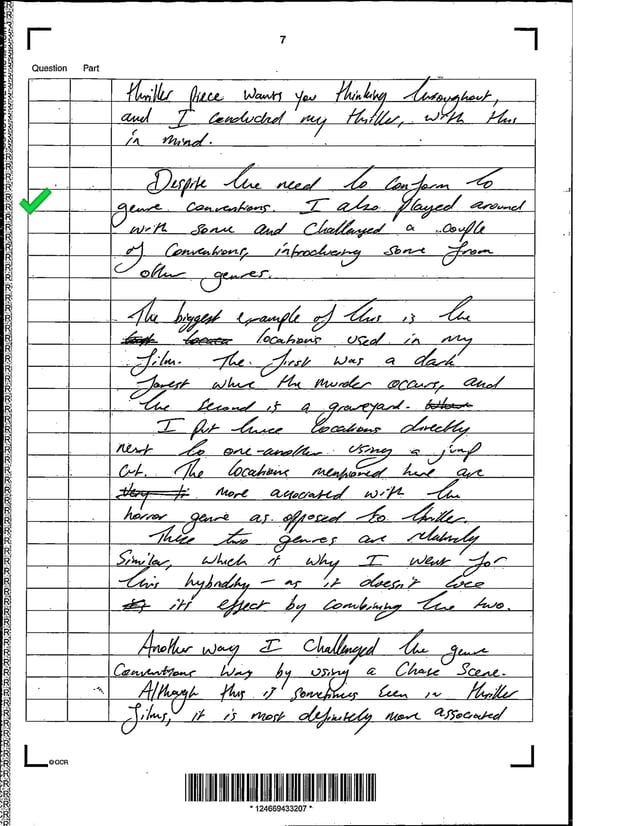 7
Question Part
thriller piece wants you thinking throughout,
and I conducted my thriller, with this
in mind.
Despite the need to conform to
genre conventions. I also played around
with some and challenged a couple
of conventions, introducing some from
other genres.
The biggest example of this is the
locations used in my
film. The first was a dark
forest where the murder occurs, and
the second is a graveyard.
I put these locations directly
next to one-another using a jump
cut. The locations mentioned here are
more associated with the
horror genre as opposed to thriller.
These two genres are relatively
similar, which is why I went for
this hybridity - as it doesn't lose
its effect by combining the two.
Another way I challenged the genre
conventions was by using a chase scene.
Although this is sometimes seen in thriller
films, it is most definitely more associated
© OCR
* 124669433207 *